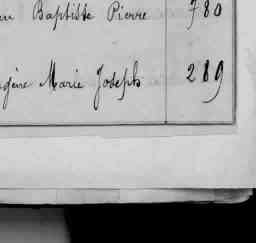 Baptiste Pierre 780
Marie Joseph 289